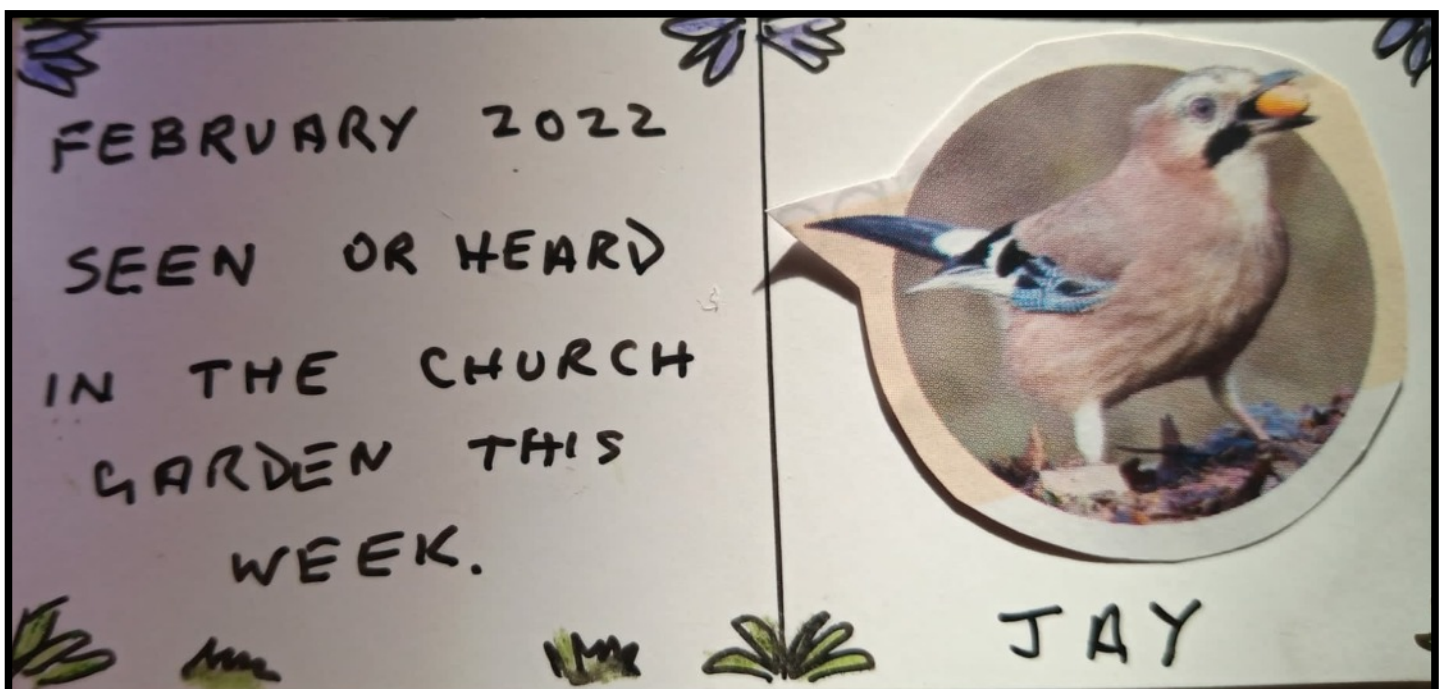 FEBRUARY 2022
SEEN OR HEARD
IN THE CHURCH
GARDEN THIS
WEEK.
JAY